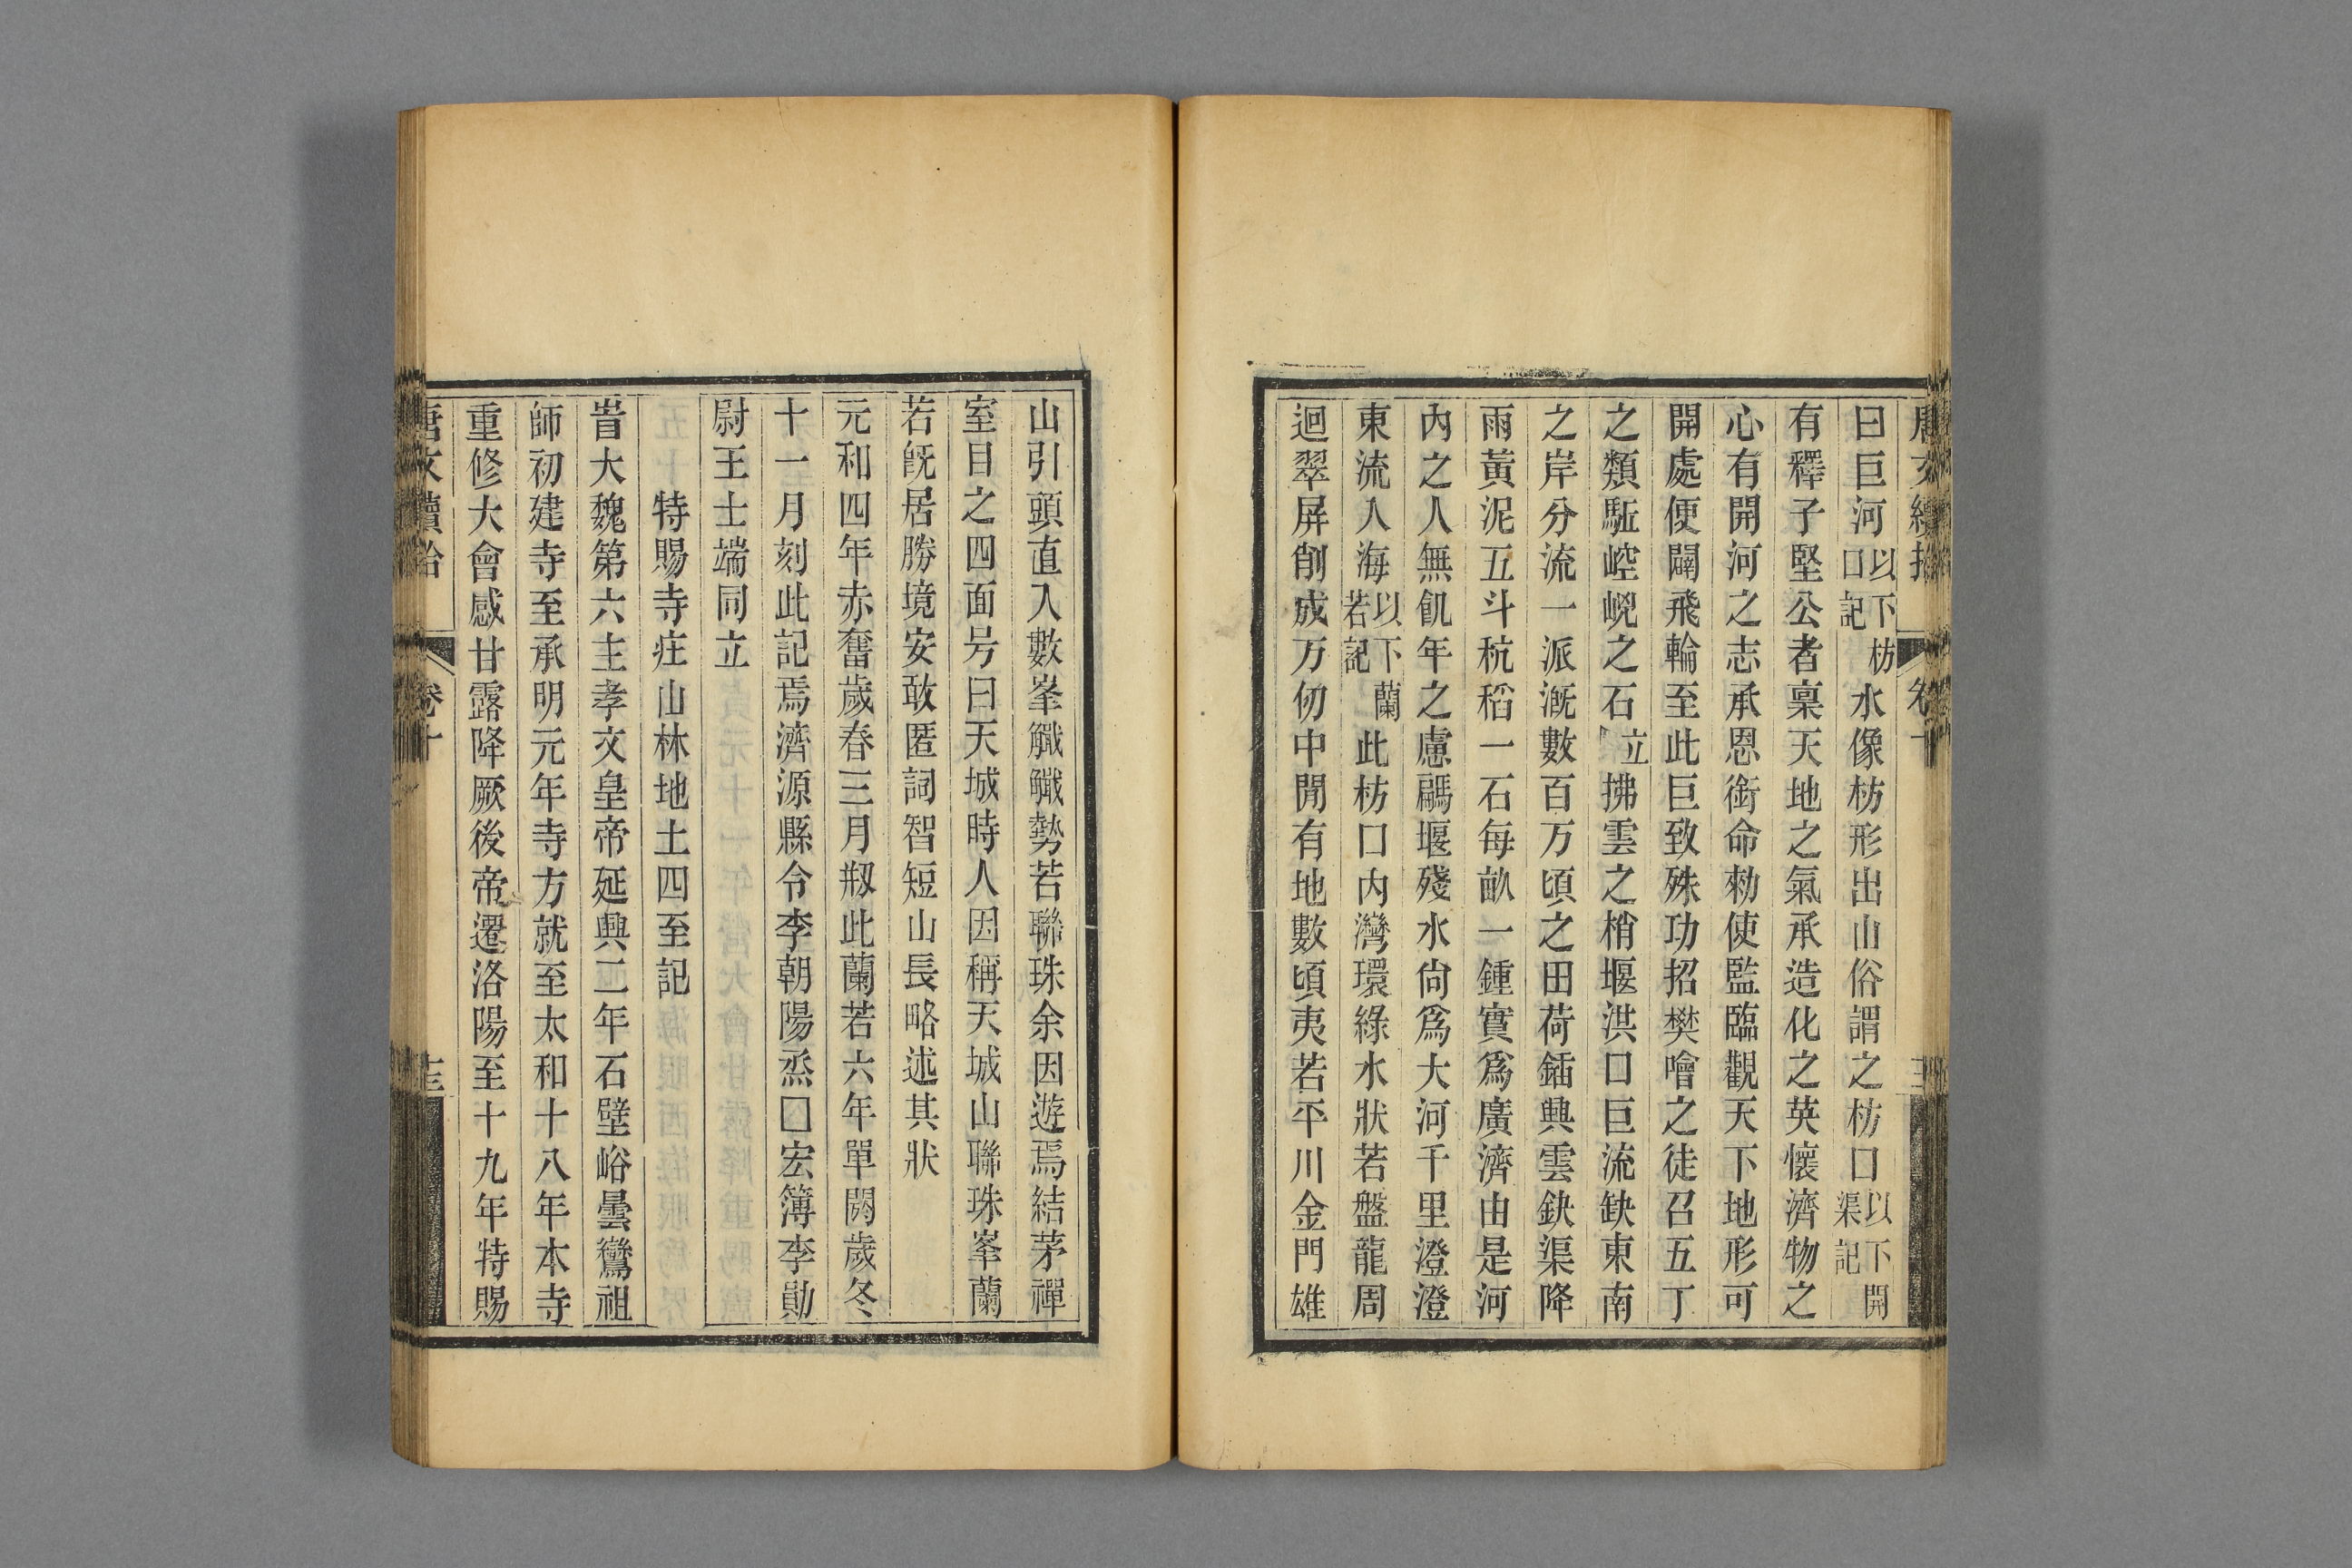 曰巨河以下枋口記水像枋形出山俗謂之枋口以下開渠記
有釋子堅公者稟天地之氣承造化之英懷濟物之
心有開河之志承恩銜命勑使監臨觀天下地形可
開處便闢飛輪至此巨致殊功招樊噲之徒召五丁
之類駈崆峴之石立拂雲之梢堰洪口巨流缺東南
之岸分流一派漑數百万頃之田荷鍤興雲鈌渠降
雨黃泥五斗秔稻一石每畝一鍾實爲廣濟由是河
內之人無飢年之慮鷊堰殘水尙爲大河千里澄澄
東流入海以下蘭若記此枋口內灣環綠水狀若盤龍周
迴翠屏削成万仞中閒有地數頃夷若平川金門雄
山引頭直入數峯巀嶭勢若聯珠余因遊焉結茅禪
室目之四面号曰天城時人因稱天城山聯珠峯蘭
若旣居勝境安敢匿詞智短山長略述其狀
元和四年赤奮歲春三月剏此蘭若六年單閼歲冬
十一月刻此記焉濟源縣令李朝陽烝□宏簿李勛
尉王士端同立
特賜寺庄山林地土四至記
昔大魏第六主孝文皇帝延興二年石壁峪曇鸞祖
師初建寺至承明元年寺方就至太和十八年本寺
重修大會感甘露降厥後帝遷洛陽至十九年特賜
唐文續拾
卷十